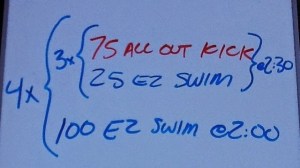 4x 3x 75 ALL OUT KICK
25 EZ SWIM @2:30
100 EZ SWIM @2:00